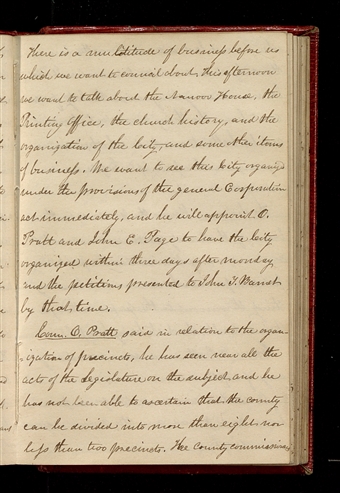 There is a multitude of business before us
which we want to council about, this afternoon
we want to talk about the Nauvoo House, the
Printing Office, the church history, and the
organization of the City, and some other items
of business. We want to see this City organized
under the provisions of the general Corporation
act immediately, and he will appoint O.
Pratt and John E. Page to have the City
organized within three days after monday
and the petitions presented to John T. Barnet
by that time.
Coun. O. Pratt said in relation to the organ-
ization of precincts, he has seen near all the
acts of the Legislature on the subject, and he
has not been able to ascertain that the county
can be divided into more than eight nor
less than two precincts. The county commissioners